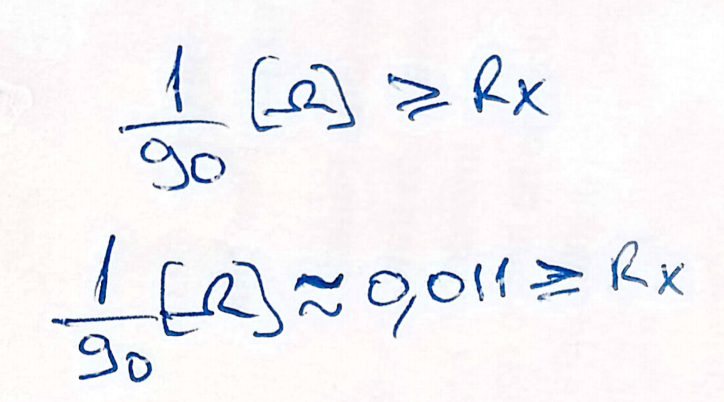 1/90 [Ω] ≥ Rx
1/90 [Ω] ≈ 0,011 ≥ Rx